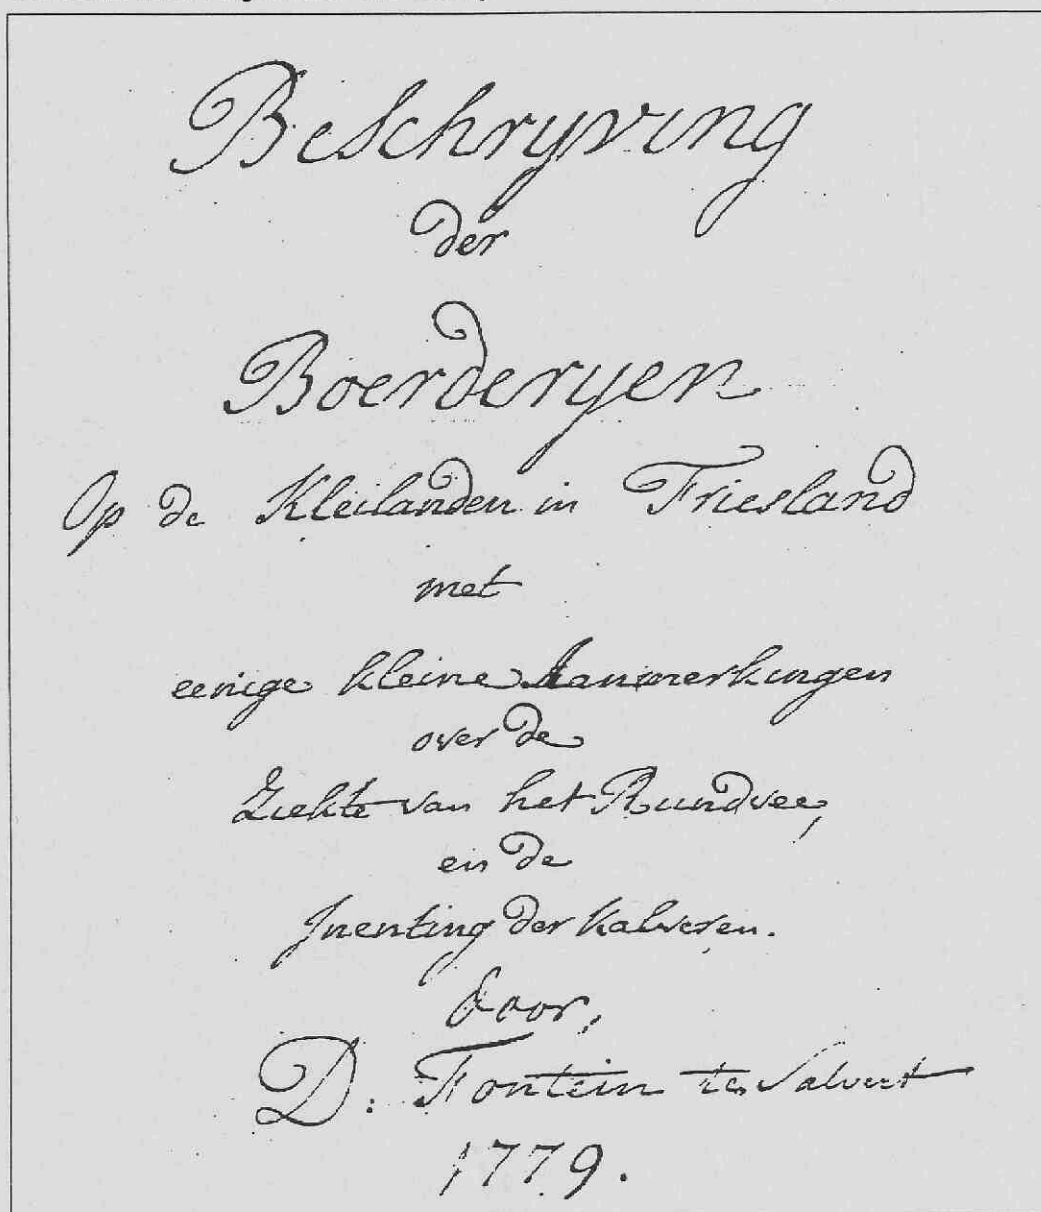 Beschryving
der
Boerderyen
Op de Kleilanden in Friesland
met
eenige kleine Aanmerkingen
over de
Ziekte van het Rundvee,
en de
Inenting der Kalveren.
door,
D: Fontein te Salvert
1779.